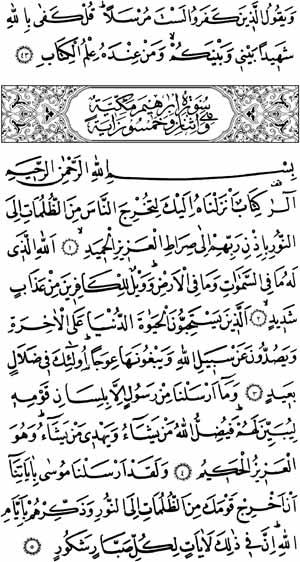 وَيَقُولُ الَّذِينَ كَفَرُوا لَسْتَ مُرْسَلًا قُلْ كَفَى بِاللّٰهِ
شَهِيدًا بَيْنِي وَبَيْنَكُمْ وَمَنْ عِنْدَهُ عِلْمُ الْكِتَابِ ﴿٤٣﴾
سُورَةُ إِبْرٰهِيمَ مَكِّيَّةٌ
وَهِيَ اثْنَتَانِ وَخَمْسُونَ آيَةً
بِسْمِ اللّٰهِ الرَّحْمٰنِ الرَّحِيمِ
الٓرٰ كِتَابٌ أَنْزَلْنَاهُ إِلَيْكَ لِتُخْرِجَ النَّاسَ مِنَ الظُّلُمَاتِ إِلَى
النُّورِ بِإِذْنِ رَبِّهِمْ إِلَى صِرَاطِ الْعَزِيزِ الْحَمِيدِ ﴿١﴾ اَللّٰهِ الَّذِي
لَهُ مَا فِي السَّمٰوَاتِ وَمَا فِي الْأَرْضِ وَوَيْلٌ لِلْكَافِرِينَ مِنْ عَذَابٍ
شَدِيدٍ ﴿٢﴾ اَلَّذِينَ يَسْتَحِبُّونَ الْحَيٰوةَ الدُّنْيَا عَلَى الْاٰخِرَةِ
وَيَصُدُّونَ عَنْ سَبِيلِ اللّٰهِ وَيَبْغُونَهَا عِوَجًا أُولٰئِكَ فِي ضَلَالٍ
بَعِيدٍ ﴿٣﴾ وَمَا أَرْسَلْنَا مِنْ رَسُولٍ إِلَّا بِلِسَانِ قَوْمِهِ
لِيُبَيِّنَ لَهُمْ فَيُضِلُّ اللّٰهُ مَنْ يَشَاءُ وَيَهْدِي مَنْ يَشَاءُ وَهُوَ
الْعَزِيزُ الْحَكِيمُ ﴿٤﴾ وَلَقَدْ أَرْسَلْنَا مُوسَى بِاٰيَاتِنَا
أَنْ أَخْرِجْ قَوْمَكَ مِنَ الظُّلُمَاتِ إِلَى النُّورِ وَذَكِّرْهُمْ بِأَيَّامِ
اللّٰهِ إِنَّ فِي ذٰلِكَ لَاٰيَاتٍ لِكُلِّ صَبَّارٍ شَكُورٍ ﴿٥﴾